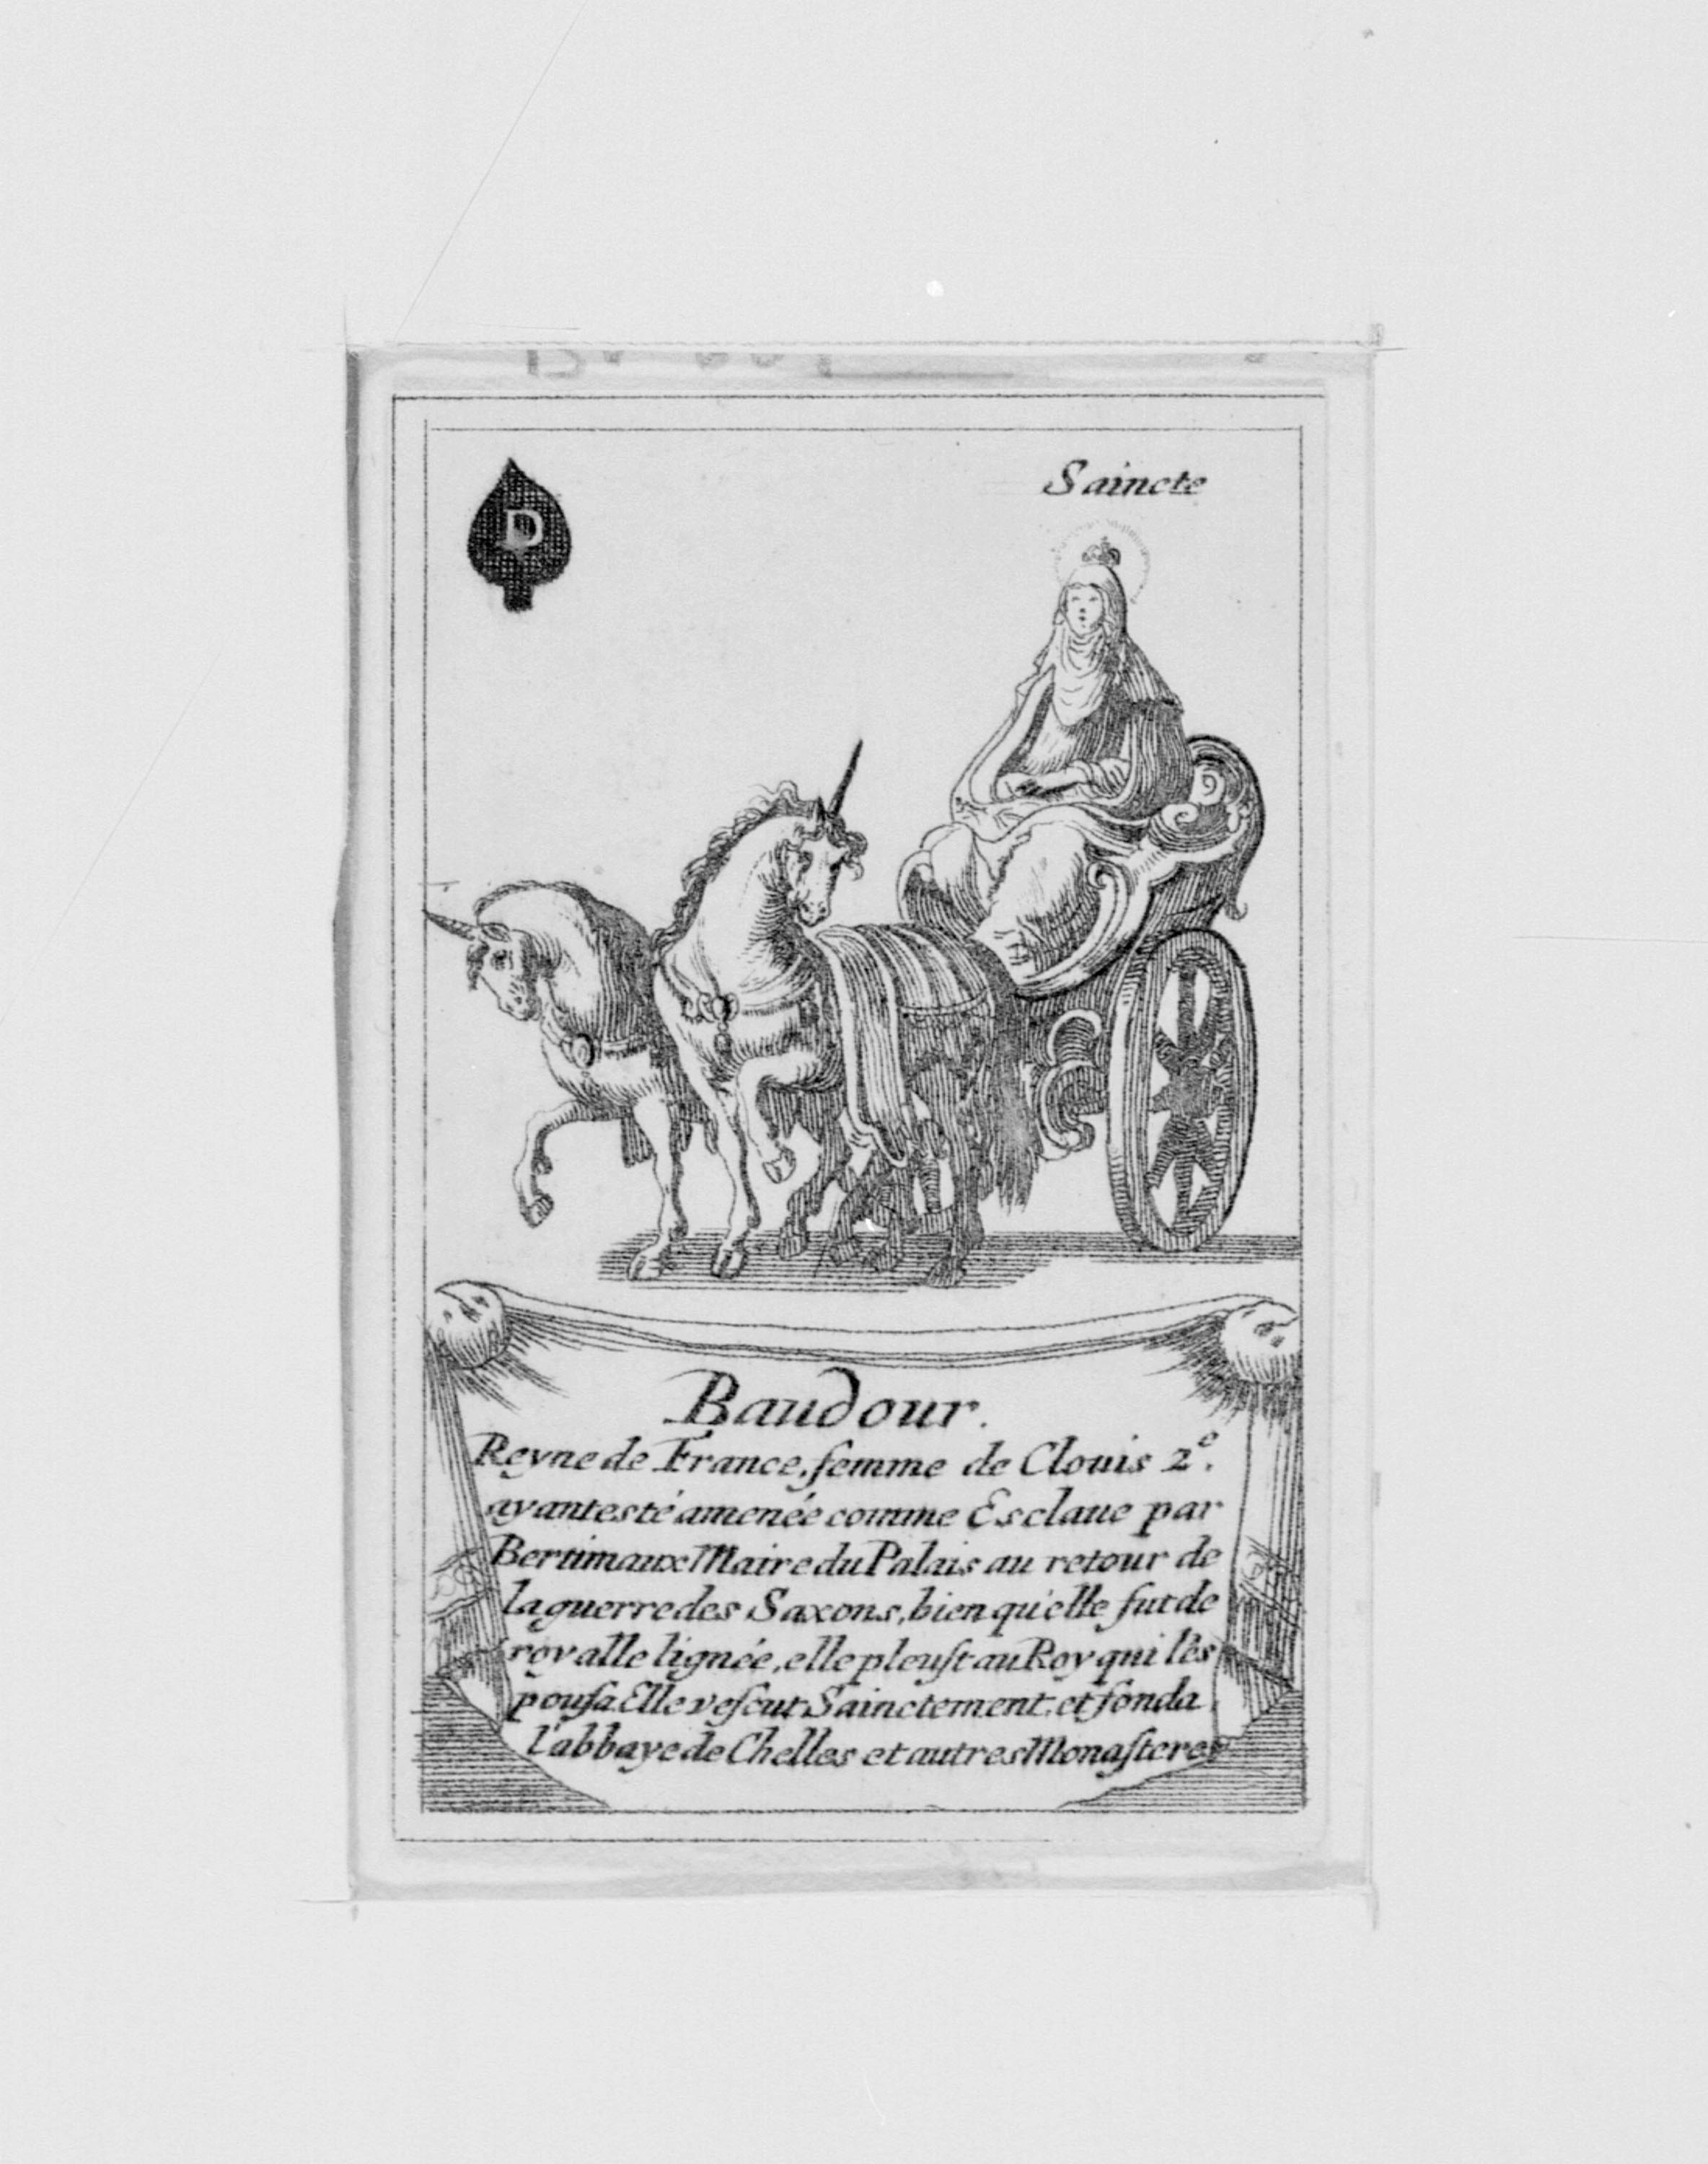 D
Saincte
Baudour.
Reyne de France, femme de Clouis 2e.
ayant esté amenée comme Esclaue par
Bertimaux Maire du Palais au retour de
la guerre des Saxons, bien qu'elle fut de
royalle lignée, elle pleuſt au Roy qui l'eſ
pouſa. Elle veſcut Sainctement, et fonda
l'abbaye de Chelles et autres Monaſteres